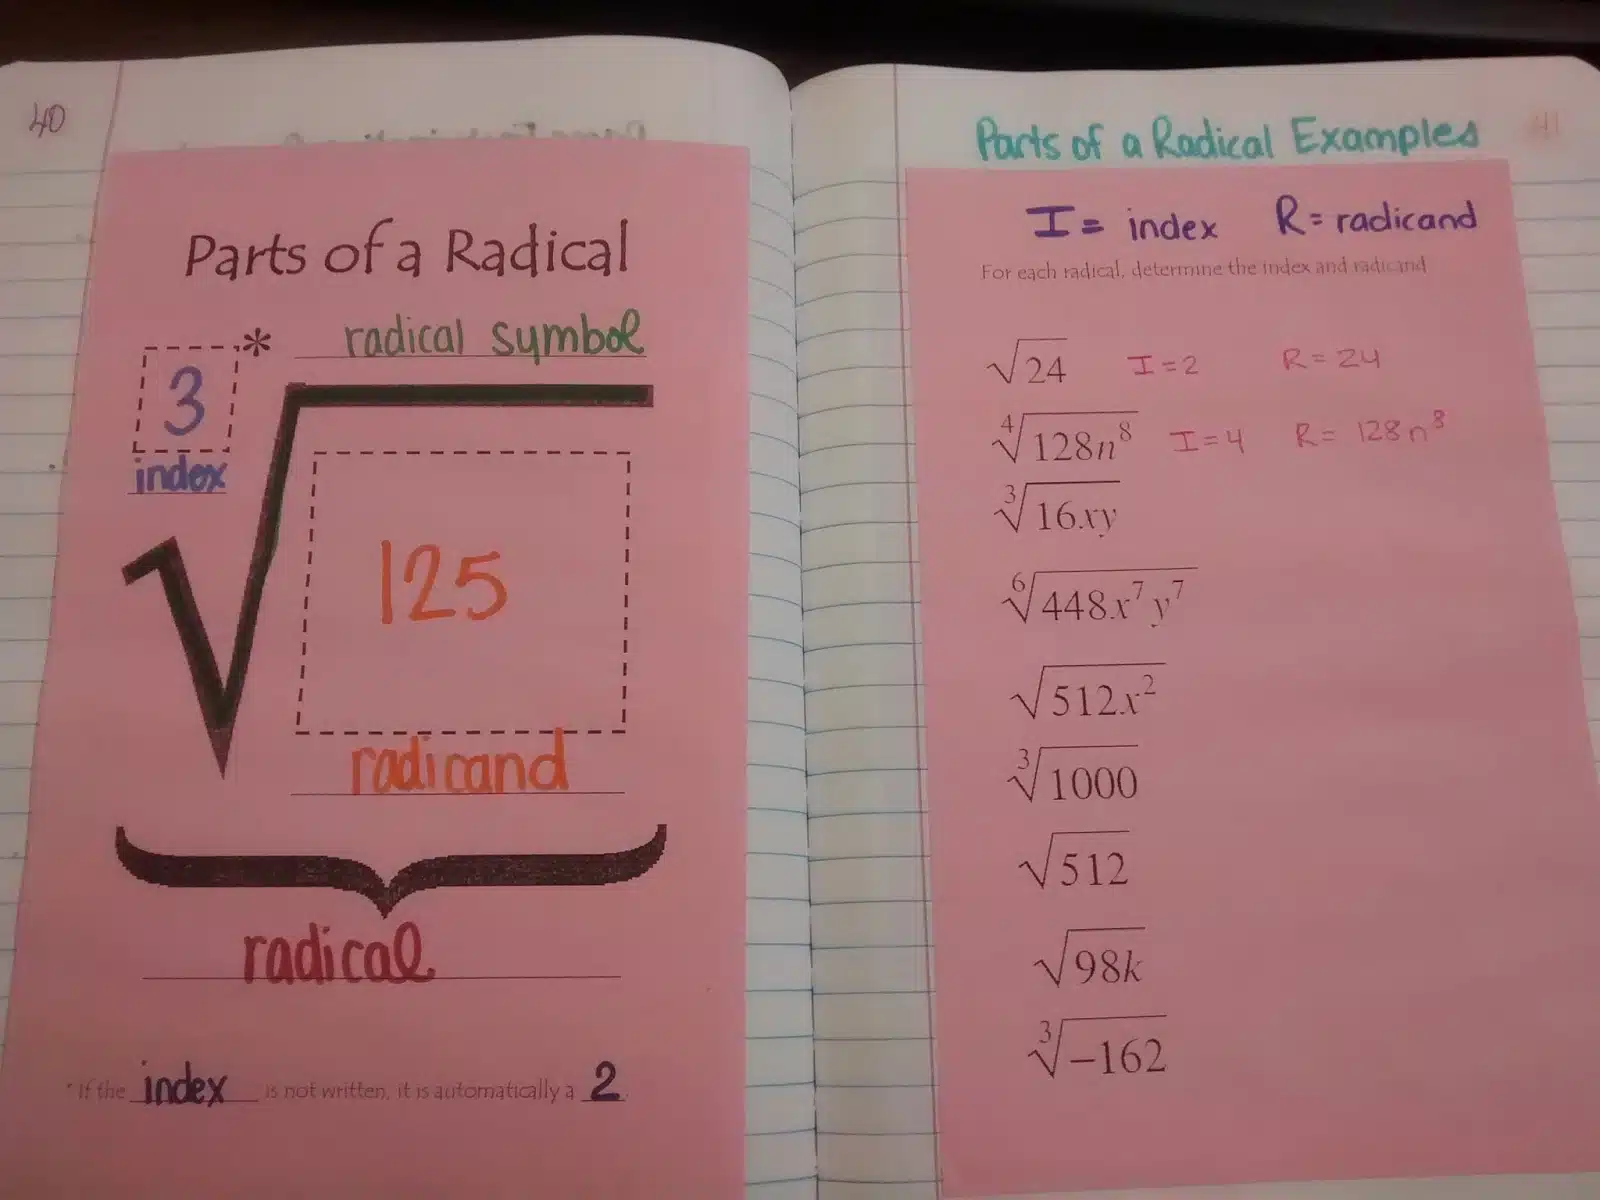 40
Parts of a Radical
3 * radical symbol
index
125
radicand
radical
* If the index is not written, it is automatically a 2
41
Parts of a Radical Examples
I = index R = radicand
For each radical, determine the index and radicand
√24 I = 2 R = 24
∜128n⁸ I = 4 R = 128n⁸
∛16xy
⁶√448x⁷y⁷
√512x²
∛1000
√512
√98k
∛−162